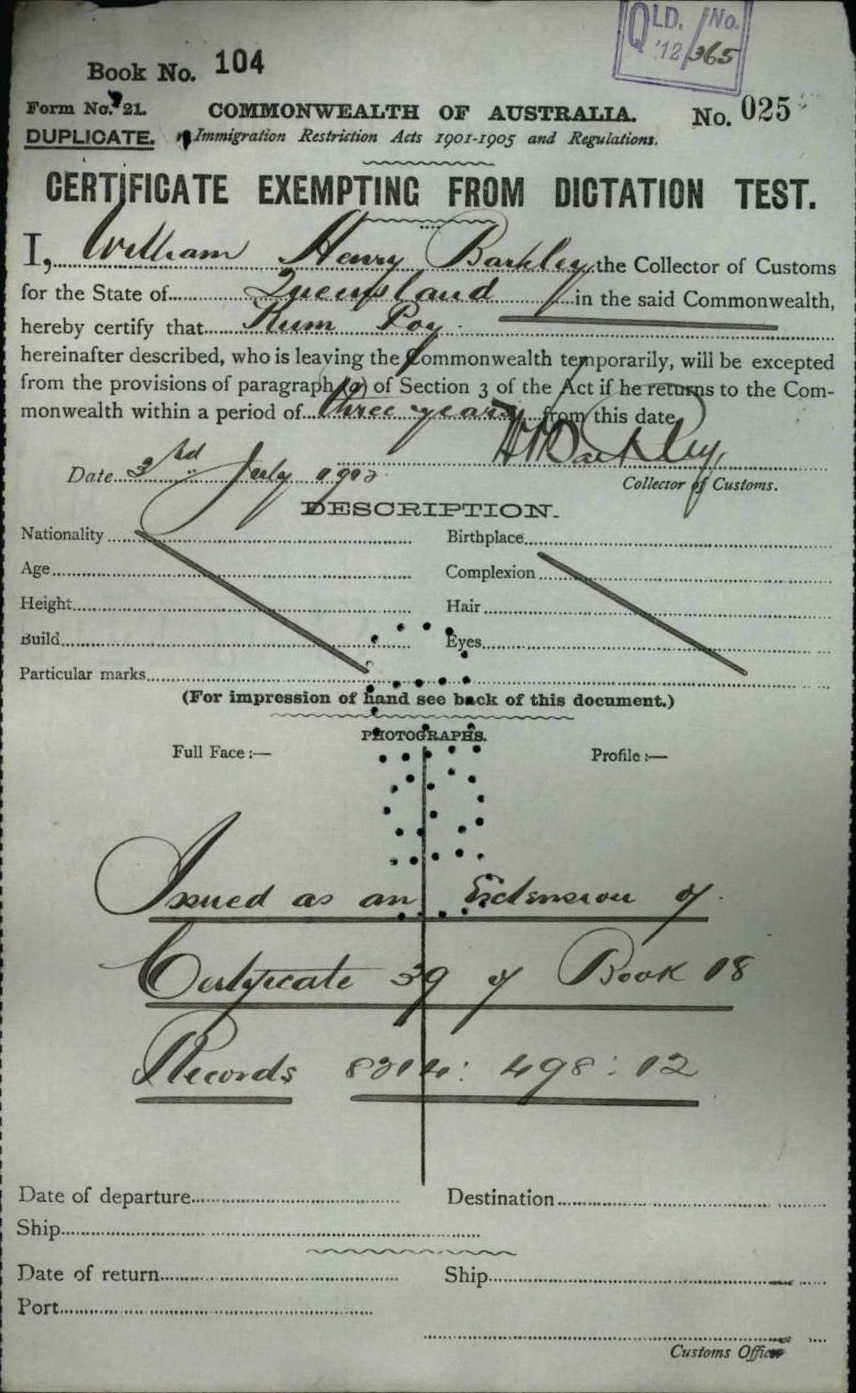 QLD. No.
'12/365
Book No. 104
Form No. 21.
COMMONWEALTH OF AUSTRALIA.
No. 025
DUPLICATE.
Immigration Restriction Acts 1901-1905 and Regulations.
CERTIFICATE EXEMPTING FROM DICTATION TEST.
I, William Henry Barkley the Collector of Customs
for the State of Queensland in the said Commonwealth,
hereby certify that Kum Poy
hereinafter described, who is leaving the Commonwealth temporarily, will be excepted
from the provisions of paragraph (a) of Section 3 of the Act if he returns to the Com-
monwealth within a period of three years from this date.
W H Barkley
Date 3rd July 1912
Collector of Customs.
DESCRIPTION.
Nationality
Birthplace
Age
Complexion
Height
Hair
Build
Eyes
Particular marks
(For impression of hand see back of this document.)
PHOTOGRAPHS.
Full Face :—
Profile :—
Issued as an Extension of
Certificate 39 of Book 18
Records 8314: 498: 12
Date of departure
Destination
Ship
Date of return
Ship
Port
Customs Officer